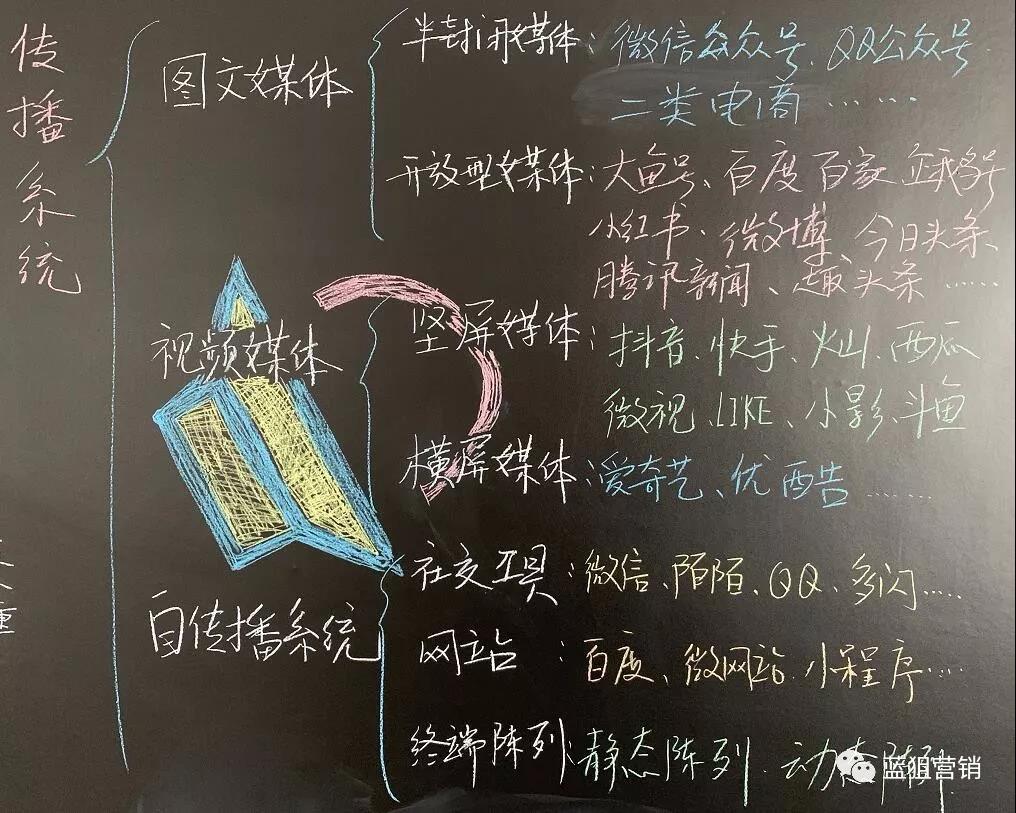 传播系统
图文媒体
半封闭媒体：微信公众号、QQ公众号
二类电商……
开放型媒体：大鱼号、百度百家
小红书、微博、今日头条、
腾讯新闻、趣头条……
视频媒体
竖屏媒体：抖音、快手、火山、西瓜
微视、LIKE、小影、斗鱼
横屏媒体：爱奇艺、优酷……
自传播系统
社交工具：微信、陌陌、QQ、多闪……
网站：百度、微网站、小程序……
终端陈列：静态陈列、动态陈列
蓝狙营销